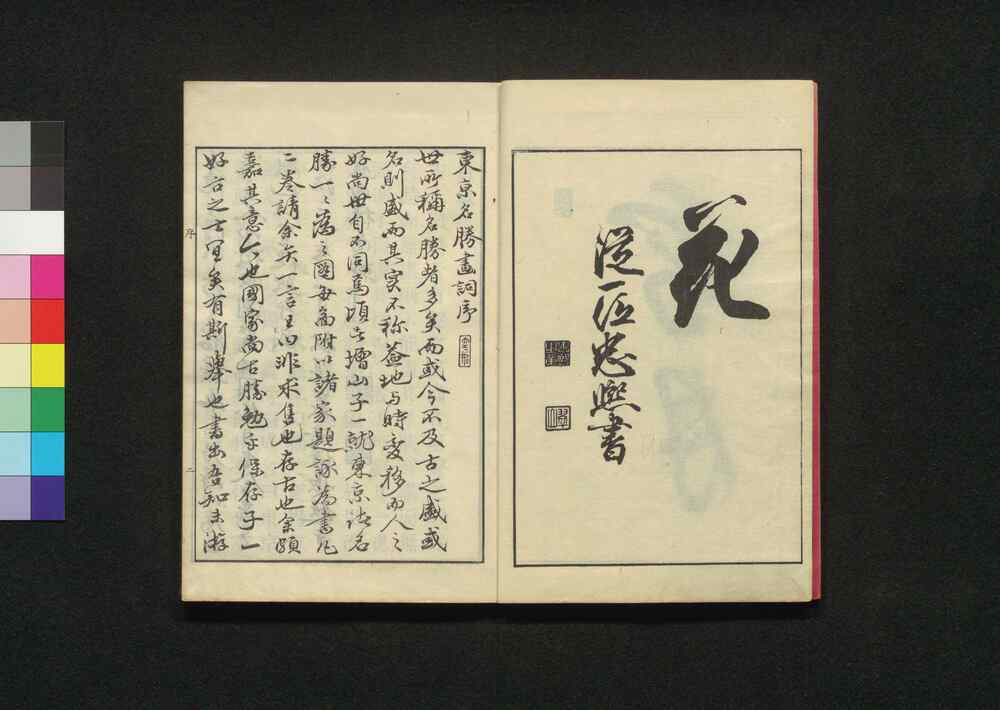 花
従一位忠熈書
東京名勝畫詞序
世所稱名勝者多矣而或今不及古之盛或
名則盛而其実不称蓋地与時変移而人之
好尚世自不同焉頃者増山子一就東京諸名
勝一々為之圖毎圖附以諸家題詠為書凡
二巻請余一言曰非求售也存古也余頗
嘉其意今也國家尚古勝勉保存子一
好古之士宜矣有斯舉也書出吾知未游
序
二